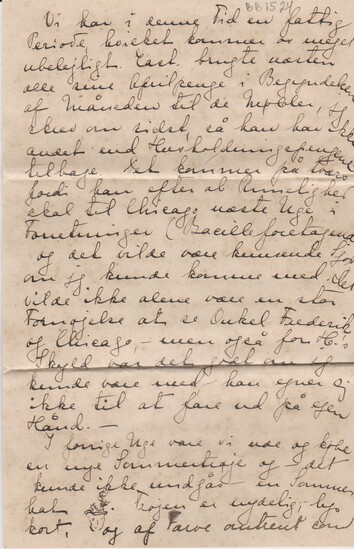 BB1524
Vi har i denne Tid en fattig
Periode, hvilket kommer os meget
ubelejligt. East. brugte næsten
alle sine Aprilpenge i Begyndelsen
af Måneden til de Møbler, jeg
skrev om sidst, så han har ikke
andet end Husholdningspengene
tilbage. Det kommer på tværs
fordi han efter al Rimelighed
skal til Chicago næste Uge i
Forretninger (Bacilleforetagende)
og det vilde være
om jeg kunde komme med. Det
vilde ikke alene være en stor
Fornøjelse at se Onkel Frederik
og Chicago, – men også for
Skyld var det godt om jeg
kunde være med – han egner sig
ikke til at fare ud på egen
Hånd. –
I forrige Uge vare vi ude og købe
en nye Sommertrøje og – det
kunde ikke undgås – en Sommer
hat. Trøjen er nydelig,
kort, og af Farve omtrent som